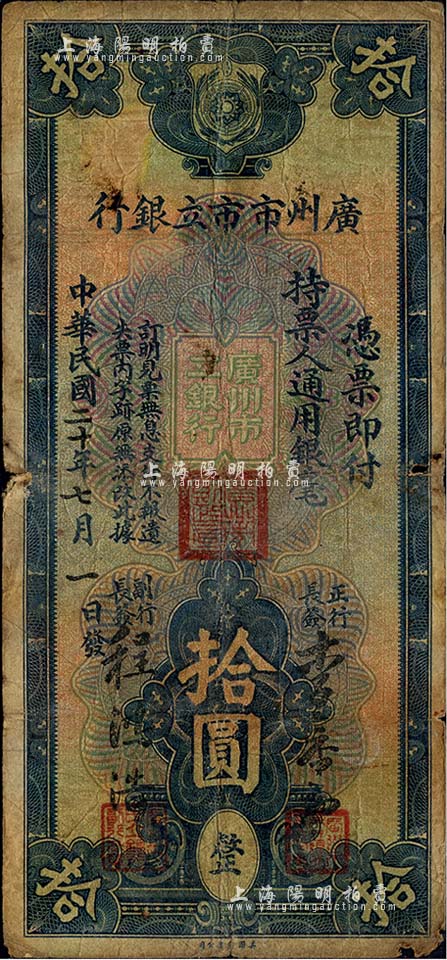 上海陽明拍賣
www.yangmingauction.com
拾
拾
廣州市市立銀行
憑票即付
持票人通用銀毫
廣州市
立銀行
訂明見票無息支
失票內字跡原無添改此據
中華民國二十年七月一日發
上海陽明拍賣
www.yangmingauction.com
正行
長簽
副行
長簽
拾圓
整
拾
拾
上海陽明拍賣
www.yangmingauction.com